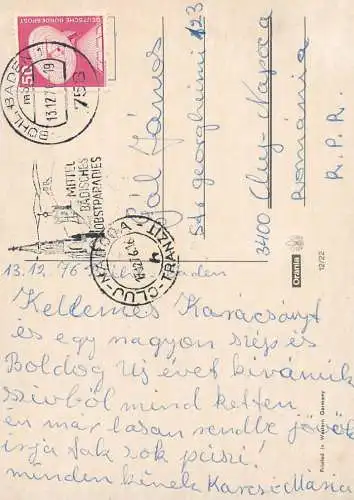 DEUTSCHE BUNDESPOST
50
BÜHL, BADEN
13.12.76-19
7583
MITTEL
BADISCHES
OBSTPARADIES
CLUJ-NAPOCA
TRANZIT
Pál János
str georgheimi 123
3400 Cluj-Napoca
România
R.P.R.
Orania
12/22
Printed in Western Germany
13.12.76 Bühl Baden
Kellemes Karácsonyt
és egy nagyon szép és
Boldog Uj évet kivánunk
szivből mind ketten
én már lasan rendbe jövök
irja tak sok puszi!
minden kinek Karcsi Mana